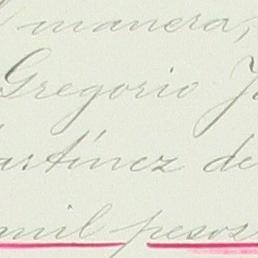 manera,
Gregorio
artínez de
mil pesos